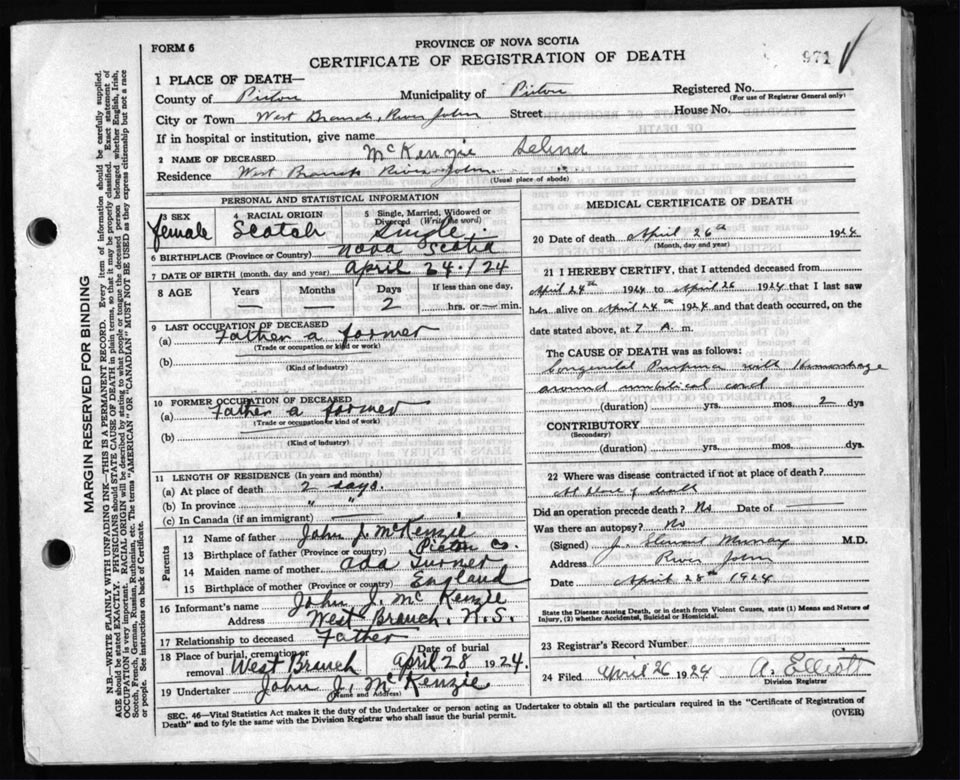 FORM 6
PROVINCE OF NOVA SCOTIA
CERTIFICATE OF REGISTRATION OF DEATH
971
1 PLACE OF DEATH—
County of Pictou Municipality of Pictou
Registered No.
(For use of Registrar General only)
City or Town West Branch, River John Street House No.
If in hospital or institution, give name
2 NAME OF DECEASED McKenzie
Residence West Branch River John
(Usual place of abode)
PERSONAL AND STATISTICAL INFORMATION
3 SEX
female
4 RACIAL ORIGIN
Scotch
5 Single, Married, Widowed or Divorced (Write the word)
Single
6 BIRTHPLACE (Province or Country) Nova Scotia
7 DATE OF BIRTH (month, day and year) April 24/24
8 AGE
Years Months Days If less than one day,
— — 2 hrs. or — min.
9 LAST OCCUPATION OF DECEASED
(a) Father a farmer
(Trade or occupation or kind or work)
(b)
(Kind of industry)
10 FORMER OCCUPATION OF DECEASED
(a) Father a farmer
(Trade or occupation or kind of work)
(b)
(Kind of industry)
11 LENGTH OF RESIDENCE (In years and months)
(a) At place of death 2 days.
(b) In province " "
(c) In Canada (if an immigrant)
Parents
12 Name of father John J. McKenzie
13 Birthplace of father (Province or country) Pictou Co.
14 Maiden name of mother Ada Turner
15 Birthplace of mother (Province or country) England
16 Informant's name John J. McKenzie
Address West Branch, N.S.
17 Relationship to deceased Father
18 Place of burial, cremation or removal West Branch
Date of burial
April 28 1924.
19 Undertaker John J. McKenzie
(Name and Address)
MEDICAL CERTIFICATE OF DEATH
20 Date of death April 26th 1924
(Month, day and year)
21 I HEREBY CERTIFY, that I attended deceased from
April 24th 1924 to April 26 1924 that I last saw
her alive on April 24th 1924 and that death occurred, on the
date stated above, at 7 A. m.
The CAUSE OF DEATH was as follows:
Congenital Purpura with Hemorrhage
around umbilical cord
(duration) yrs. mos. 2 dys
CONTRIBUTORY
(Secondary)
(duration) yrs. mos. dys.
22 Where was disease contracted if not at place of death?
At place of death
Did an operation precede death? No Date of —
Was there an autopsy? No
(Signed) J. Stewart Murray M.D.
Address River John
Date April 28th 1924
State the Disease causing Death, or in death from Violent Causes, state (1) Means and Nature of
Injury, (2) whether Accidental, Suicidal or Homicidal.
23 Registrar's Record Number
24 Filed April 26 1924 A. Elliott
Division Registrar
SEC. 46—Vital Statistics Act makes it the duty of the Undertaker or person acting as Undertaker to obtain all the particulars required in the "Certificate of Registration of
Death" and to fyle the same with the Division Registrar who shall issue the burial permit.
(OVER)
MARGIN RESERVED FOR BINDING
N.B.—WRITE PLAINLY WITH UNFADING INK—THIS IS A PERMANENT RECORD. Every item of information should be carefully supplied.
AGE should be stated EXACTLY. PHYSICIANS should STATE CAUSE OF DEATH in plain terms, so that it may be properly classified. Exact statement of
OCCUPATION is very important. RACIAL ORIGIN will be described by stating to what people or tongue the deceased person belonged whether English, Irish,
Scotch, French, German, Russian, Ruthenian, etc. The terms "AMERICAN" or "CANADIAN" MUST NOT BE USED as they express citizenship but not a race
or people. See instructions on back of Certificate.